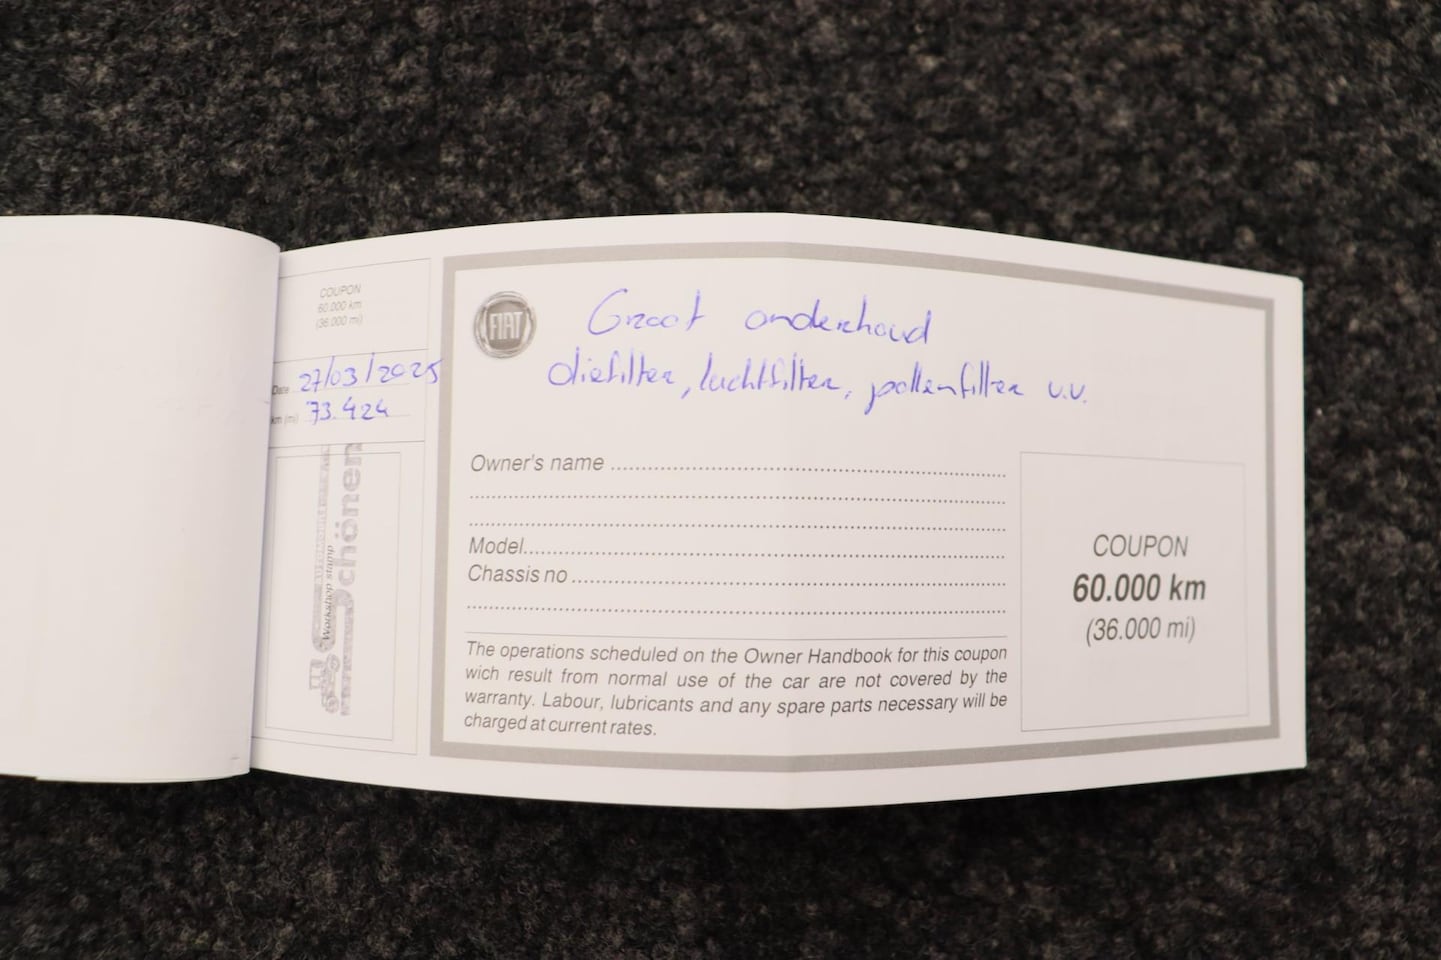 COUPON
60.000 km
(36.000 mi)
Date 27/03/2025
km (mi) 73.424
Workshop stamp
chönen
FIAT
Groot onderhoud
oliefilter, luchtfilter, pollenfilter v.v.
Owner's name
Model
Chassis no
The operations scheduled on the Owner Handbook for this coupon
wich result from normal use of the car are not covered by the
warranty. Labour, lubricants and any spare parts necessary will be
charged at current rates.
COUPON
60.000 km
(36.000 mi)